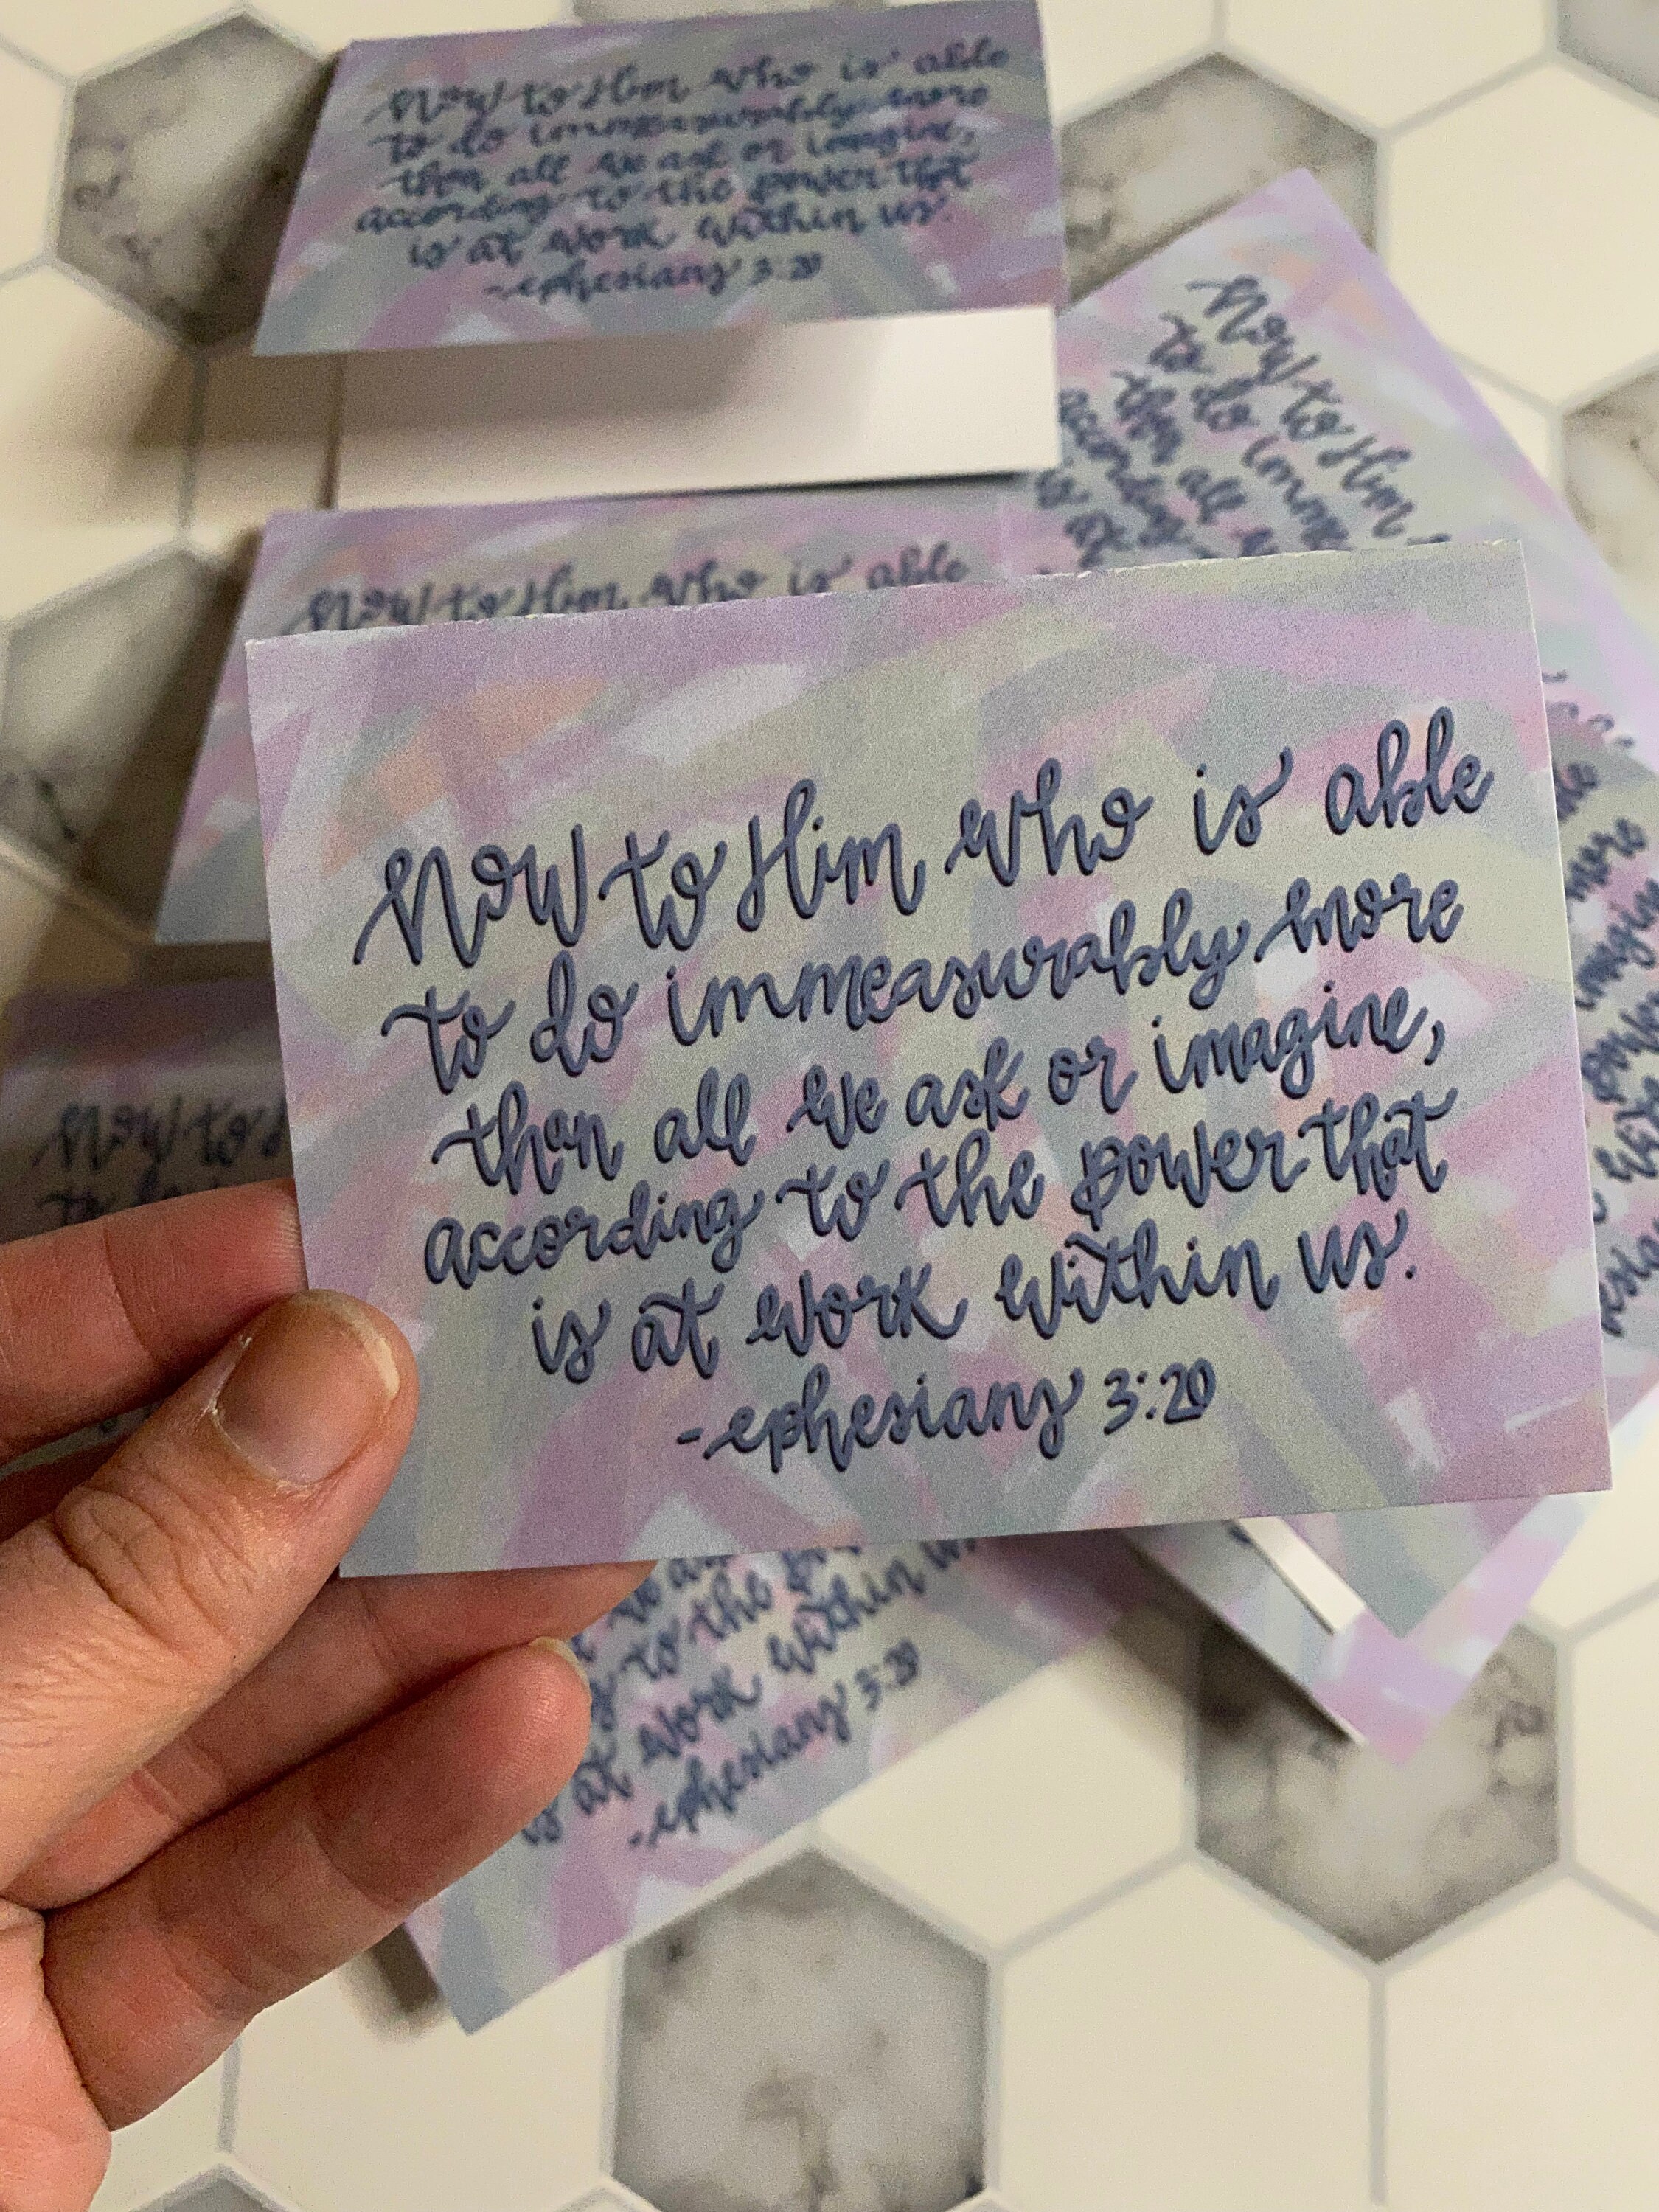 Now to Him who is able
to do immeasurably more
than all we ask or imagine,
according to the power that
is at work within us.
-ephesians 3:20
Now to Him who is able
to do immeasurably more
than all we ask or imagine,
according to the power that
is at work within us.
-ephesians 3:20
Now to Him
to do
than all
Now to Him who is able
more
Now to
Now to Him who is able
to do immeasurably more
than all we ask or imagine,
according to the power that
is at work within us.
-ephesians 3:20
to the
at work within
-ephesians 3:20